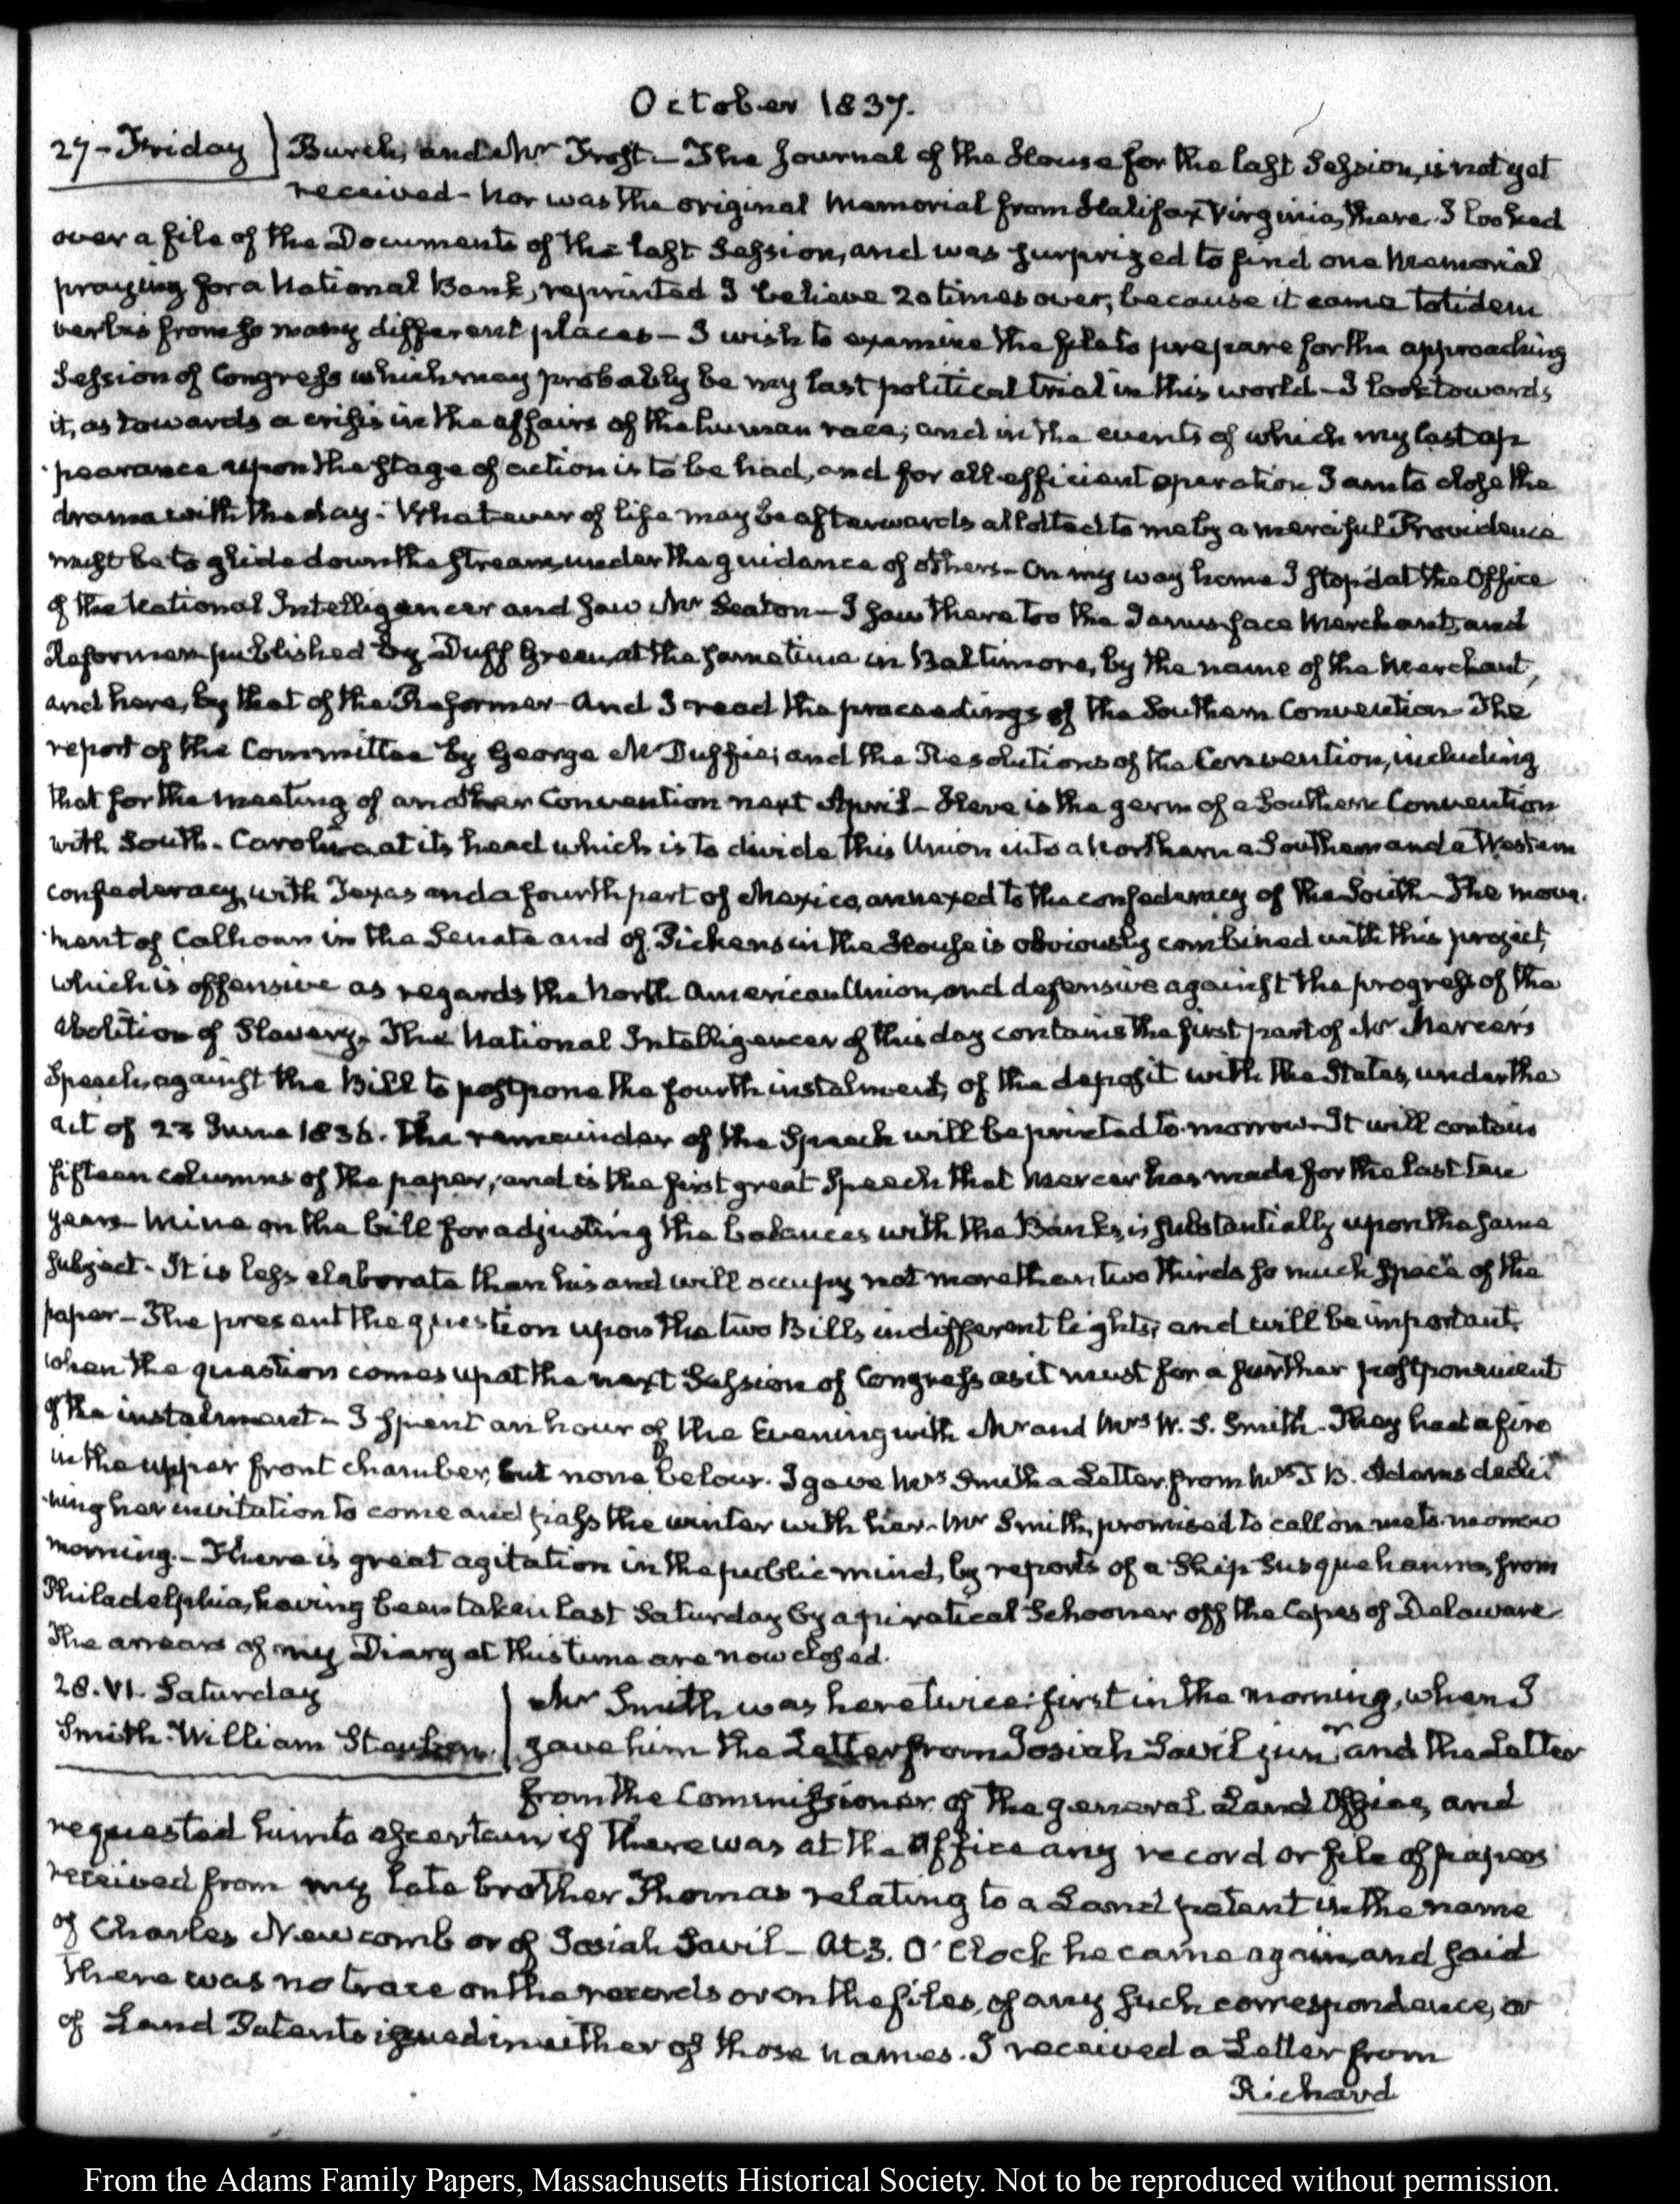 October 1837.
27-Friday
Burch, and Mr Frost - The Journal of the House for the last Session, is not yet
received - Nor was the original Memorial from Halifax Virginia, there. I looked
over a file of the Documents of the last Session, and was surprized to find one Memorial
praying for a National Bank, reprinted I believe 20 times over, because it came totidem
verbis from so many different places - I wish to examine the file to prepare for the approaching
Session of Congress which may probably be my last political trial in this world - I look towards
it, as towards a crisis in the affairs of the human race; and in the events of which my last ap
-pearance upon the stage of action is to be had, and for all efficient operation I am to close the
drama with the day - Whatever of life may be afterwards allotted to me by a merciful Providence
must be to glide down the stream, under the guidance of others - On my way home I stop'd at the Office
of the National Intelligencer and saw Mr Seaton - I saw there too the Janus face Merchant, and
Reformer published by Duff Green, at the same time in Baltimore, by the name of the Merchant,
and here, by that of the Reformer - And I read the proceedings of the Southern Convention - The
report of the Committee by George McDuffie; and the Resolutions of the Convention, including
that for the meeting of another Convention next April - Here is the germ of a Southern Convention
with South-Carolina at its head which is to divide this Union into a Northern a Southern and a Western
confederacy, with Texas and a fourth part of Mexico, annexed to the confederacy of the South - The move-
-ment of Calhoun in the Senate and of Pickens in the House is obviously combined with this project,
which is offensive as regards the North American Union, and defensive against the progress of the
abolition of Slavery - The National Intelligencer of this day contains the first part of Mr Mercer's
Speech, against the Bill to postpone the fourth instalment, of the deposit with the States, under the
act of 23 June 1836. The remainder of the Speech will be printed to-morrow - It will contain
fifteen columns of the paper, and is the first great Speech that Mercer has made for the last ten
years - Mine on the bill for adjusting the balances with the Banks, is substantially upon the same
subject - It is less elaborate than his and will occupy not more than two thirds so much space of the
paper - The present the question upon the two Bills in different lights; and will be important,
when the question comes up at the next Session of Congress as it must for a further postponement
of the instalment - I spent an hour of the Evening with Mr and Mrs W. S. Smith - They had a fire
in the upper front chamber, but none below. I gave Mrs Smith a Letter from Mrs J B. Adams decli
-ning her invitation to come and pass the winter with her - Mr Smith, promised to call on me to-morrow
morning. - There is great agitation in the public mind, by reports of a Ship Susquehanna, from
Philadelphia, having been taken last Saturday by a piratical Schooner off the Capes of Delaware
The arrears of my Diary at this time are now closed.
28. VI. Saturday
Smith. William Steuben.
Mr Smith was here twice: first in the morning, when I
gave him the Letter from Josiah Savil junr and the Letter
from the Commissioner of the general Land Office, and
requested him to ascertain if there was at the Office any record or file of papers
received from my late brother Thomas relating to a Land patent in the name
of Charles Newcomb or of Josiah Savil - At 3. O'Clock he came again, and said
there was no trace on the records or on the files, of any such correspondence, or
of Land Patents issued in either of those names. I received a Letter from
Richard
From the Adams Family Papers, Massachusetts Historical Society. Not to be reproduced without permission.